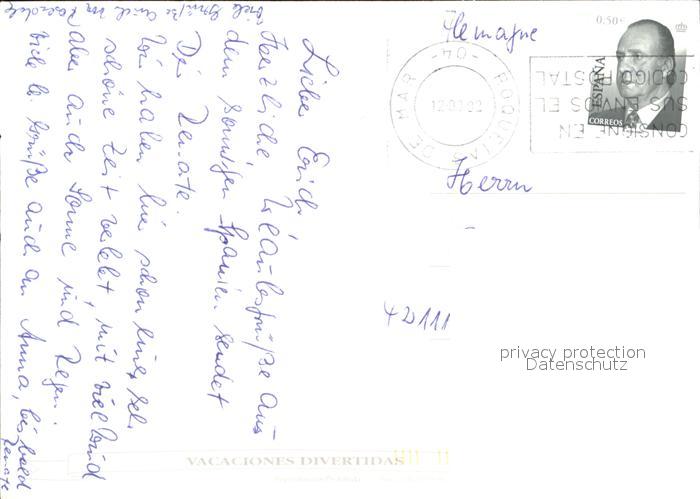 Lieber Erich!
Herzliche Urlaubsgrüße aus
dem sonnigen Spanien sendet
Dir Renate.
Wir haben hier schon eine, sehr
schöne Zeit verlebt, mit viel Wind
aber auch Sonne und Regen.
Viele lb. Grüße auch an Anna, bis bald
Renate
Viele Grüße auch von
Alemagne
Herrn
D111
0,50€
ESPAÑA
CORREOS
ROQUETAS DE MAR
-04-
12.03.02
CONSIGNE EN
SUS ENVIOS EL
CODIGO POSTAL
privacy protection
Datenschutz
VACACIONES DIVERTIDAS